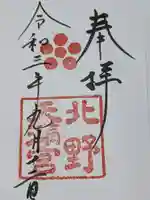 奉拝
北野
天満宮
令和三年九月二日